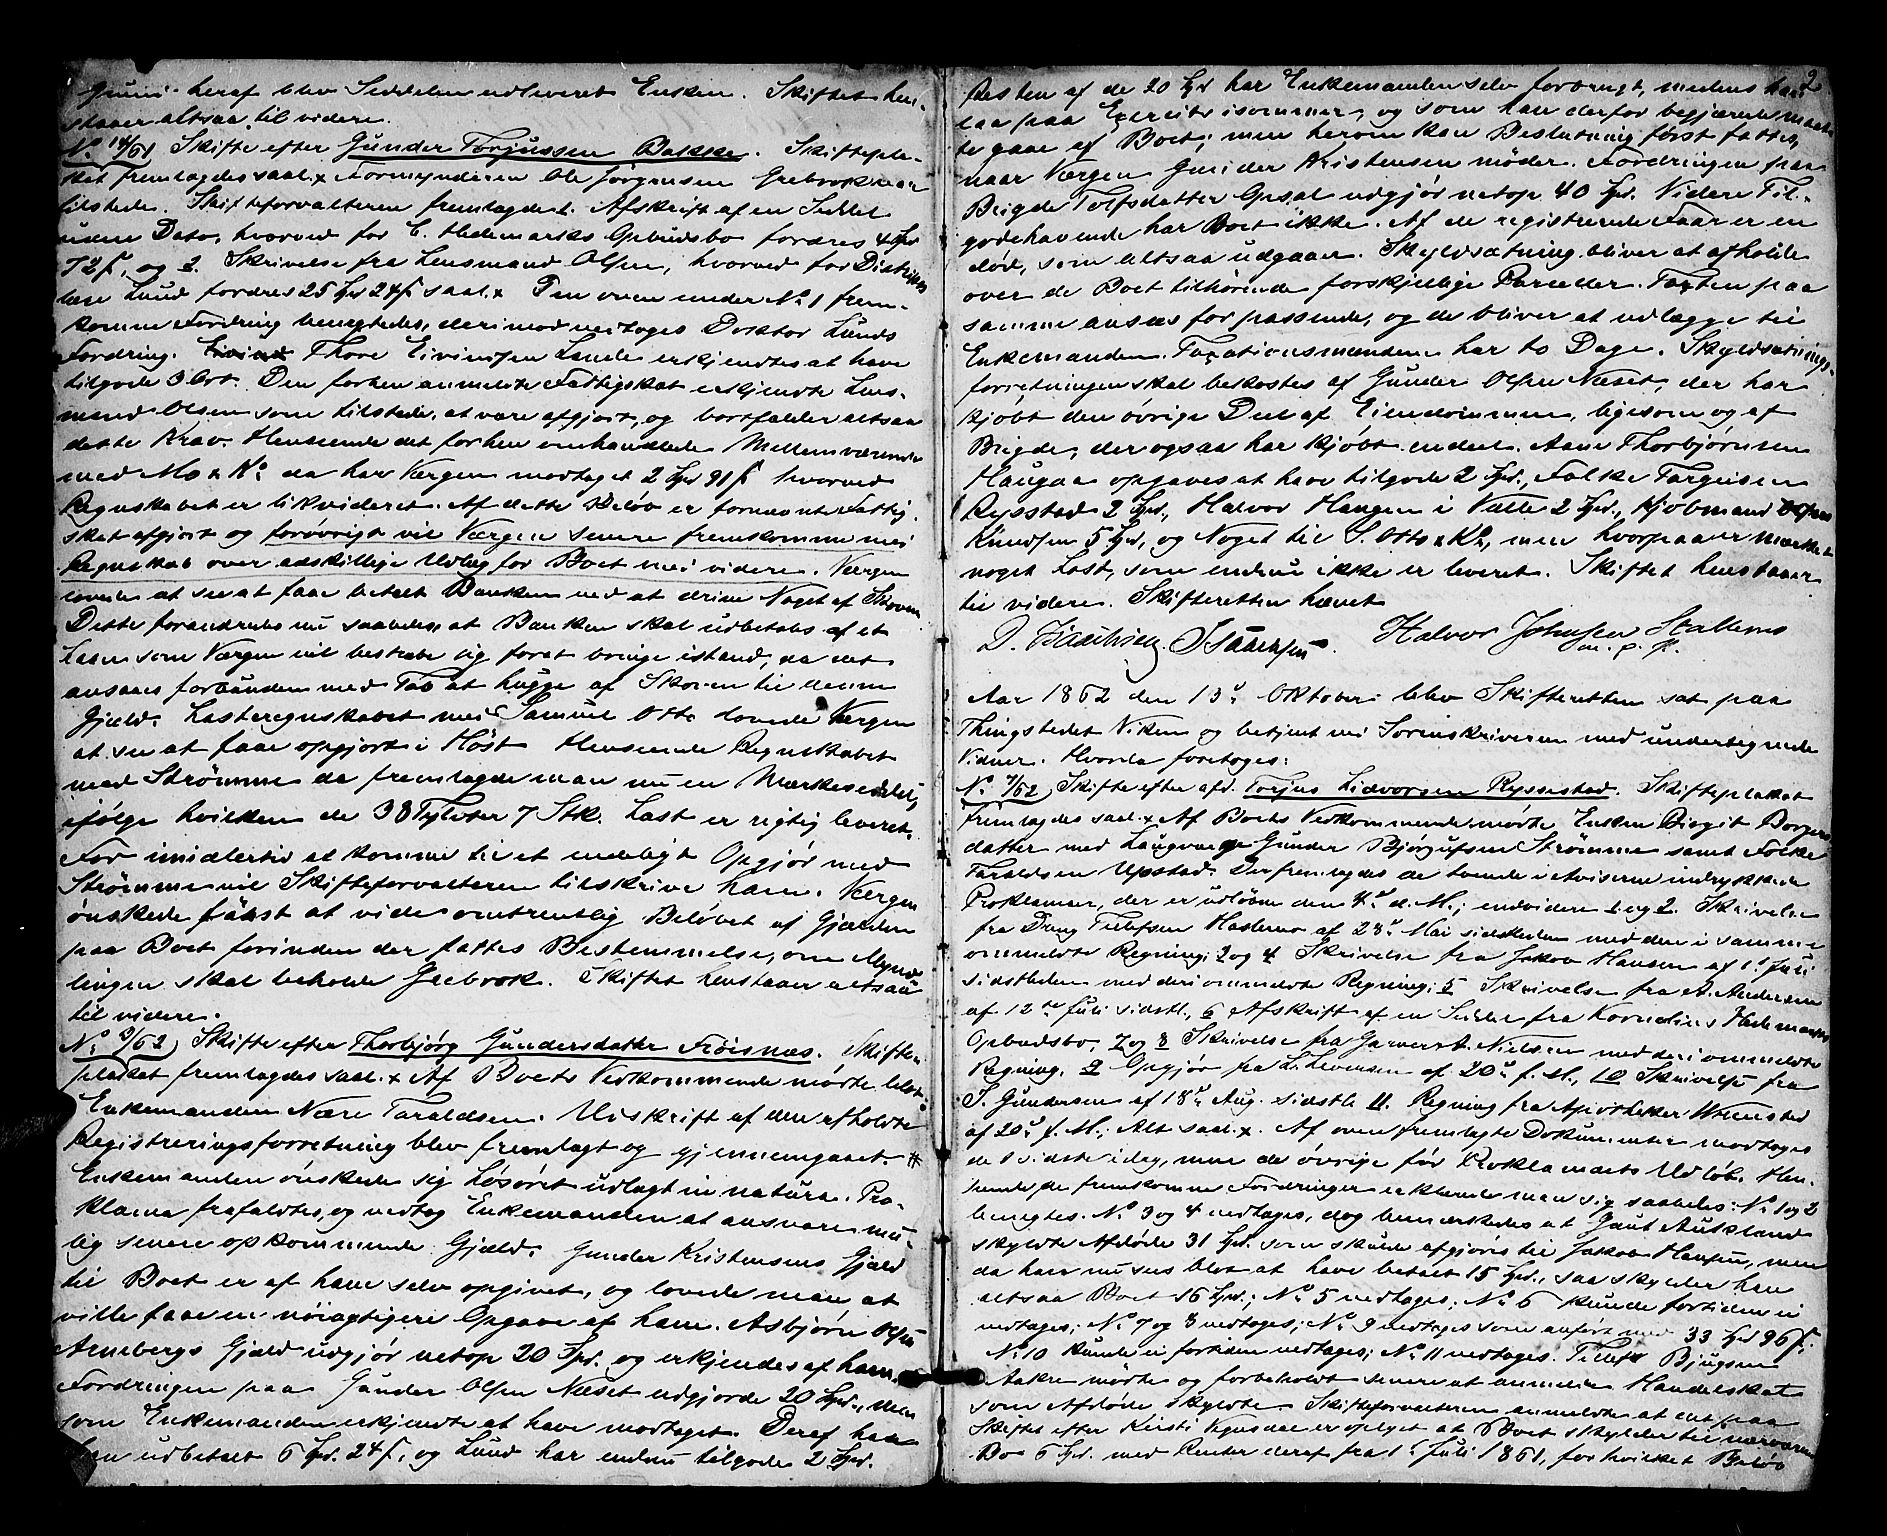 Grund heraf blev Seddelen udleveret Enken. Skiftet hen-
staaer altsaa til videre.
No 14/61 Skifte efter Gunder Torjussen Bakke. Skiftepla-
kat fremlagdes saal. x Formynderen Ole Jørgensen Grebrok var
tilstede. Skifteforvalteren fremlagde 1. Afskrift af en Seddel
uden Dato, hvorved for C. Hedemarks Opbudsbo fordres 4 Spd
72 ß, og 2. Skrivelse fra Lensmand Olsen, hvorved for Distrikts
læge Lund fordres 25 Spd 24 ß saal. x Den oven under No 1 frem-
komne Fordring benegtedes, derimod vedtoges Doktor Lunds
Fordring. Thore Eivindsen Lande erkjendtes at have
tilgode 3 Ort. Den forhen anmeldte Fattigskat erkjendte Lens-
mand Olsen som tilstede, at være afgjort, og bortfalder altsaa
dette Krav. Henseende det forhen omhandlede Mellemværende
med Mo & Ko da har Værgen modtaget 2 Spd 91 ß hvorved
Regnskabet er likvideret. Af dette Beløb er fornævnte Fattig-
skat afgjort og forøvrigt vil Værgen senere fremkomme med
Regnskab over adskillige Udlæg for Boet med videre. Værgen
lovede at see at faae betalt Banken ved at drive Noget af Skoven
Dette forandredes nu saaledes, at Banken skal udbetales af et
Laan som Værgen vil bestræbe sig for at bringe istand, da det
ansaaes forbunden med Tab at hugge af Skoven til denne
Gjæld. Lasteregnskabet med Samuel Otto lovede Værgen
at see at faae opgjort i Høst. Henseende Regnskabet
med Strømme da fremlagde man nu en Mærkeseddel,
ifølge hvilken de 38 Tylvter 7 Stk. Last er rigtig leveret.
For imidlertid at komme til et endeligt Opgjør med
Strømme vil Skifteforvalteren tilskrive ham. Værgen
ønskede først at vide omtrentlig Beløbet af Gjælden
paa Boet forinden der fattes Bestemmelse, om Mynd-
lingen skal beholde Grebrok. Skiftet henstaaer altsaa
til videre.
No 3/62) Skifte efter Thorbjørg Gundersdatter Frøisnæs. Skifte-
plakat fremlagdes saal. x Af Boets Vedkommende mødte blot
Enkemanden Nære Taraldsen. Udskrift af den afholdte
Registreringsforretning blev fremlagt og gjennemgaaet. #
Enkemanden ønskede sig Løsøret udlagt in natura. Pro-
klama frafaldtes, og vedtog Enkemanden at ansvare mu-
lig senere opkommende Gjæld. Gunder Kristensens Gjæld
til Boet er af ham selv opgivet, og lovede man at
ville faae en nøiagtigere Opgave af ham. Asbjørn Olsen
Arnebergs Gjæld udgjør netop 20 Spd. og erkjendes af ham.
Fordringen paa Gunder Olsen Næset udgjorde 20 Spd., den
som Enkemanden erkjendte at have modtaget. Deraf har
han udbetalt 6 Spd. 24 ß, og Lund har endnu tilgode 2 Spd.
2
Resten af de 20 Spd har Enkemanden selv forbrugt, medens han
laa paa Exercits isommer, og som han derfor begjærede maat-
te gaae af Boet; men herom kan Beslutning først fattes,
naar Værgen Gunder Kristensen møder. Fordringen paa
Brigde Tolfsdatter Opsal udgjør netop 40 Spd. Videre Til-
godehavende har Boet ikke. Af de registrerede Faar er en
død, som altsaa udgaaer. Skyldsætning bliver at afholde
over de Boet tilhørende forskjellige Parceller. Taxten paa
samme ansees for passende, og de bliver at udlægge til
Enkemanden. Taxationsmændene har to Dage. Skyldsætnings-
forretningen skal bekostes af Gunder Olsen Næset, der har
kjøbt den øvrige Deel af Eiendommen, ligesom og af
Brigde, der ogsaa har kjøbt endeel. Aane Thorbjørnsen
Haugaa opgaves at have tilgode 2 Spd., Folke Torgiusen
Rysstad 2 Spd., Halvor Haugen i Valle 2 Spd., Kjøbmand
Knudsen 5 Spd, og Noget til S. Otto & Ko, men hvorpaa er mærket
noget Last, som endnu ikke er leveret. Skiftet henstaaer
til videre. Skifteretten hævet
Halvor Johnsen Stallemo
m. p. P.
Aar 1862 den 13de Oktober blev Skifteretten sat paa
Thingstedet Viken og betjent ved Sorenskriveren med undertegnede
Vidner. Hvorda foretoges:
No 7/62) Skifte efter afd. Torjus Lidvorsen Ryssestad. Skifteplakat
fremlagdes saal. x Af Boets Vedkommende mødte Enken Birgit Borgers
datter med Laugværge Gunder Bjørgufsen Strømme samt Folke
Taraldsen Upstad. Der fremlagdes de tvende i Aviserne indrykkede
Proklamaer, der er udløbne den 4de d. M.; endvidere 1 og 2. Skrivelse
fra Dreng Tellefsen Hasleмо af 28de Mai sidstleden med den i samme
ommeldte Regning; 3 og 4 Skrivelse fra Jakob Hansen af 1ste Juli
sidstleden med deri ommeldte Regning; 5 Skrivelse fra A. Andersen
af 12te Juli sidstl., 6 Afskrift af en Seddel fra Kornelius Hedemarks
Opbudsbo, 7 og 8 Skrivelse fra Garver A. Nielsen med deri ommeldte
Regning. 9 Opgjør fra L. Levensen af 20de f. M., 10 Skrivelse fra
S. Gundersen af 18de Aug. sidstl. 11. Regning fra Apotheker
af 20de f. M.; Alt saal. x. Af ovenfremlagte Dokumenter modtoges
de sidste idag, men de øvrige før Proklamaets Udløb. Hen-
seende de fremkomne Fordringer erklærede man sig saaledes: No 1 og 2
benegtes. No 3 og 4 vedtages, dog bemærkedes at Gaut Aukland
skyldte Afdøde 31 Spd. som skulde afgjøres til Jakob Hansen, men
da han nu sees blot at have betalt 15 Spd., saa skylder han
altsaa Boet 16 Spd.; No 5 vedtages; No 6 kunde fortiden ei
vedtages; No 7 og 8 vedtages; No 9 vedtages som anført med 33 Spd 96 ß.
No 10 kunde ei fortiden vedtages; No 11 vedtages. Tellef Bjugsen
Aakre mødte og forbeholdt senere at anmelde Handelskat
som Afdøde skyldte. Skifteforvalteren anmeldte at det paa
Skiftet efter Kersti er oplyst at Boet skylder til nærværende
Bo 6 Spd. med Renter deraf fra 1ste Juli 1861, for hvilket Beløb